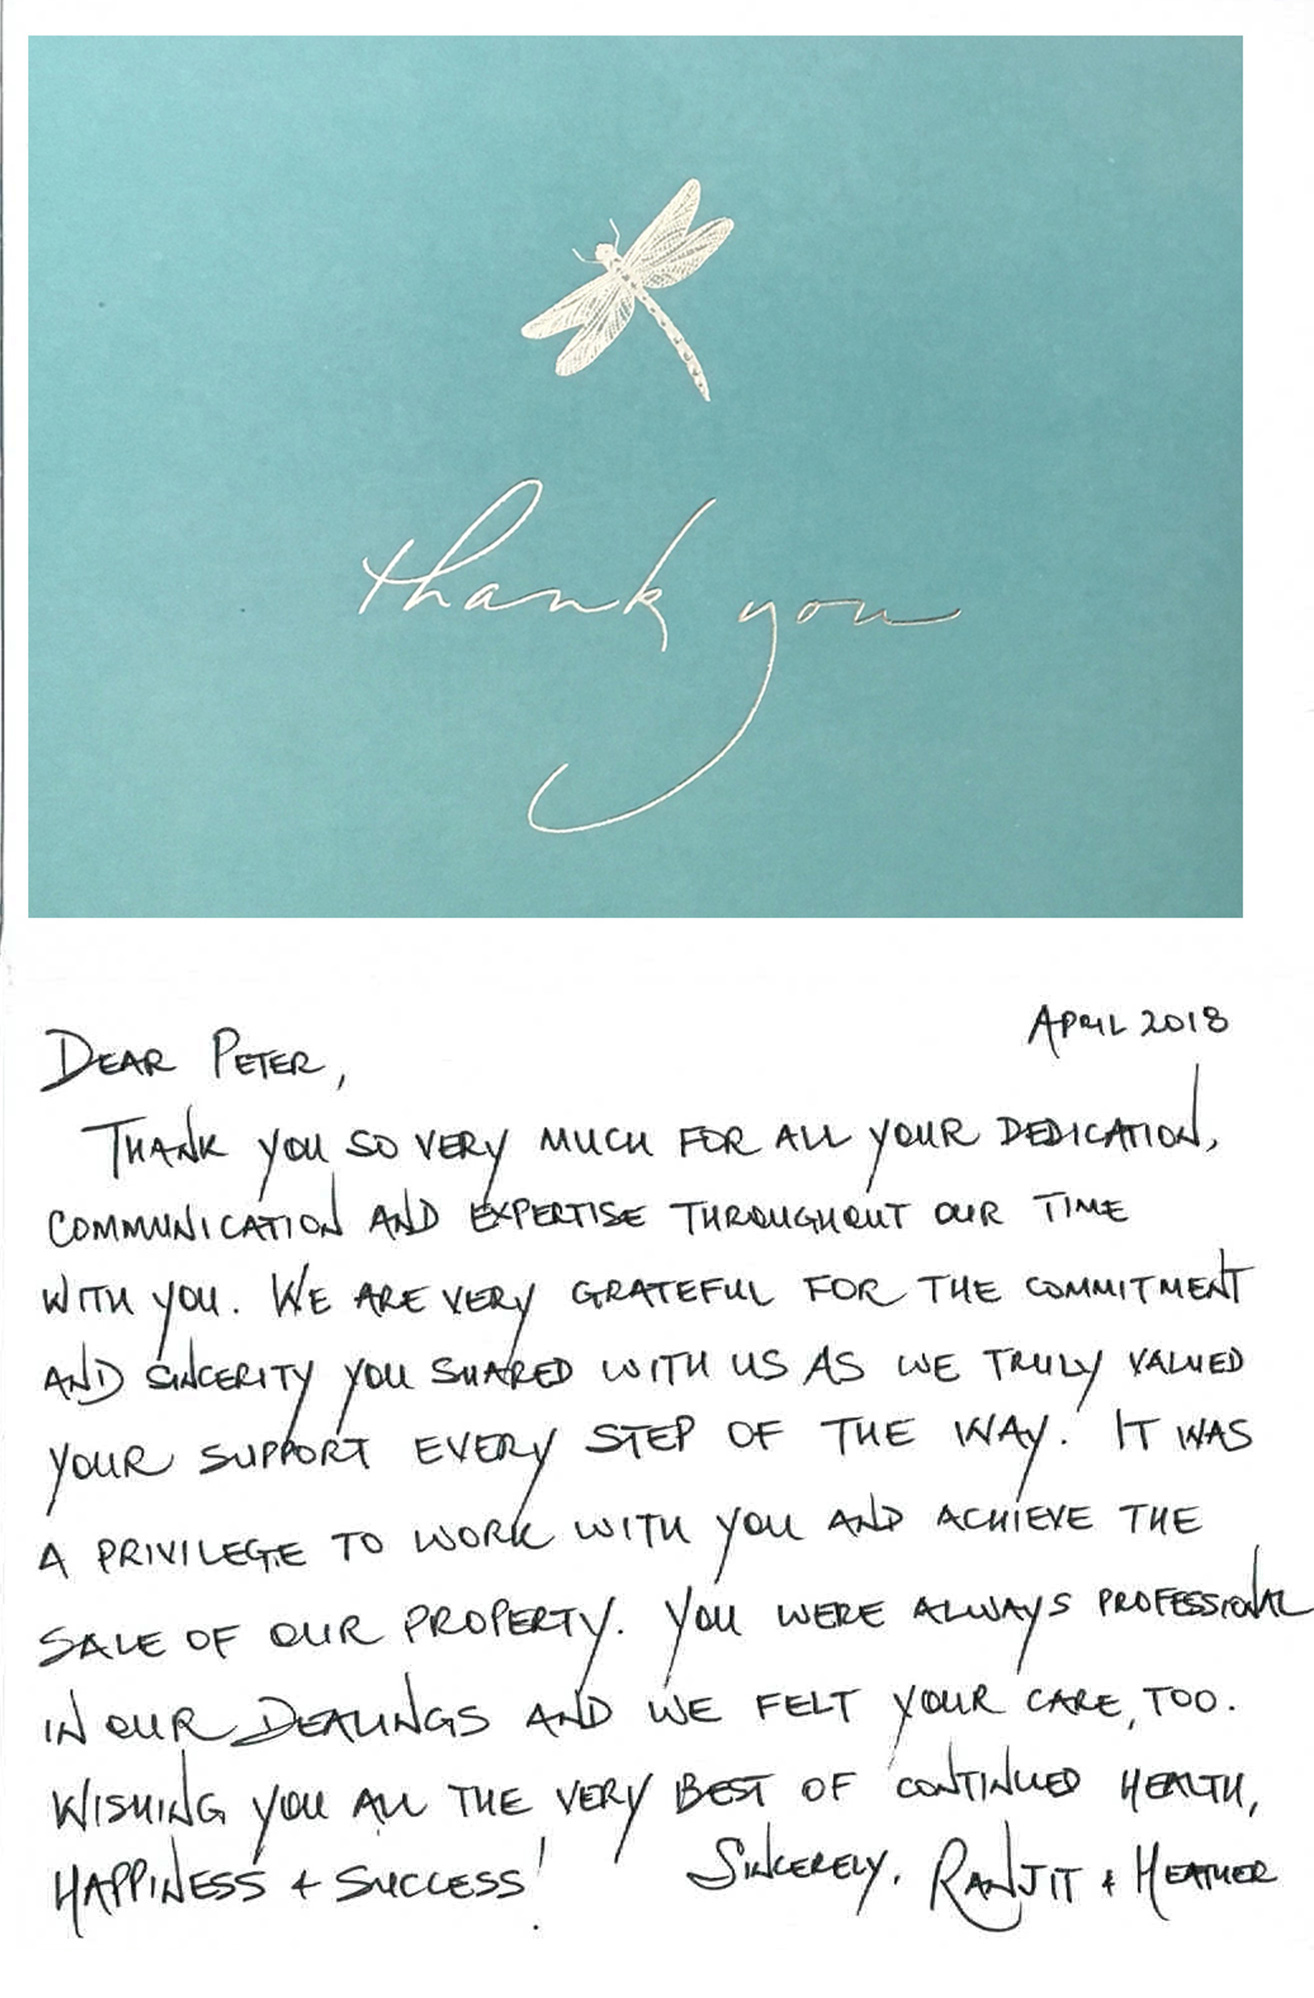 thank you
APRIL 2018
DEAR PETER,
THANK YOU SO VERY MUCH FOR ALL YOUR DEDICATION,
COMMUNICATION AND EXPERTISE THROUGHOUT OUR TIME
WITH YOU. WE ARE VERY GRATEFUL FOR THE COMMITMENT
AND SINCERITY YOU SHARED WITH US AS WE TRULY VALUED
YOUR SUPPORT EVERY STEP OF THE WAY. IT WAS
A PRIVILEGE TO WORK WITH YOU AND ACHIEVE THE
SALE OF OUR PROPERTY. YOU WERE ALWAYS PROFESSIONAL
IN OUR DEALINGS AND WE FELT YOUR CARE, TOO.
WISHING YOU ALL THE VERY BEST OF CONTINUED HEALTH,
HAPPINESS + SUCCESS! SINCERELY, RANJIT + HEATHER